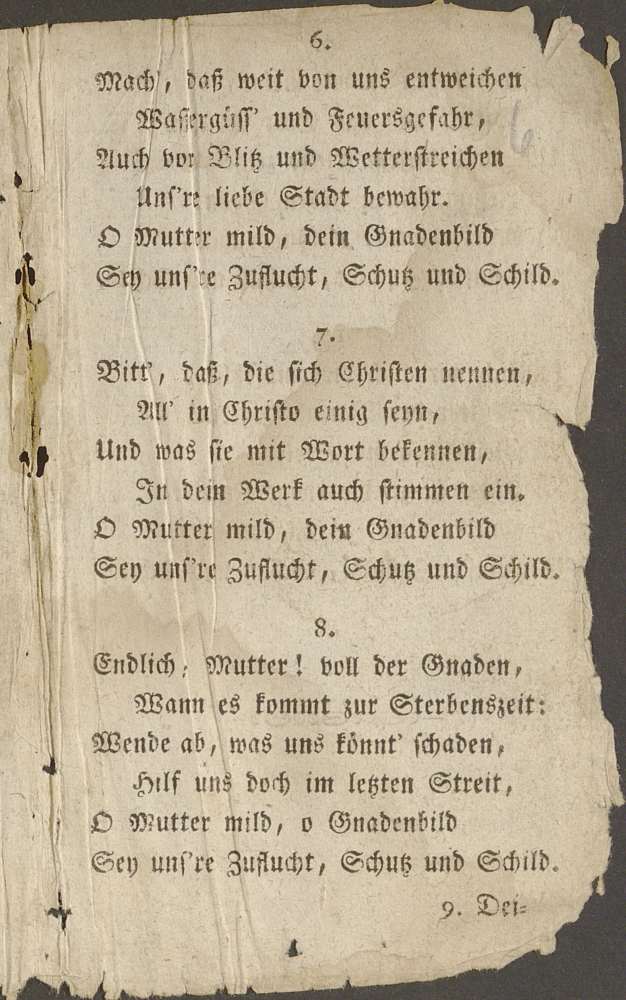 6.
Mach', daß weit von uns entweichen
Wassergüss' und Feuersgefahr,
Auch vor Blitz und Wetterstreichen
Uns're liebe Stadt bewahr.
O Mutter mild, dein Gnadenbild
Sey uns're Zuflucht, Schutz und Schild.
7.
Bitt', daß, die sich Christen nennen,
All' in Christo einig seyn,
Und was sie mit Wort bekennen,
In dein Werk auch stimmen ein.
O Mutter mild, dein Gnadenbild
Sey uns're Zuflucht, Schutz und Schild.
8.
Endlich, Mutter! voll der Gnaden,
Wann es kommt zur Sterbenszeit:
Wende ab, was uns könnt' schaden,
Hilf uns doch im letzten Streit,
O Mutter mild, o Gnadenbild
Sey uns're Zuflucht, Schutz und Schild.
9. Dei=
6